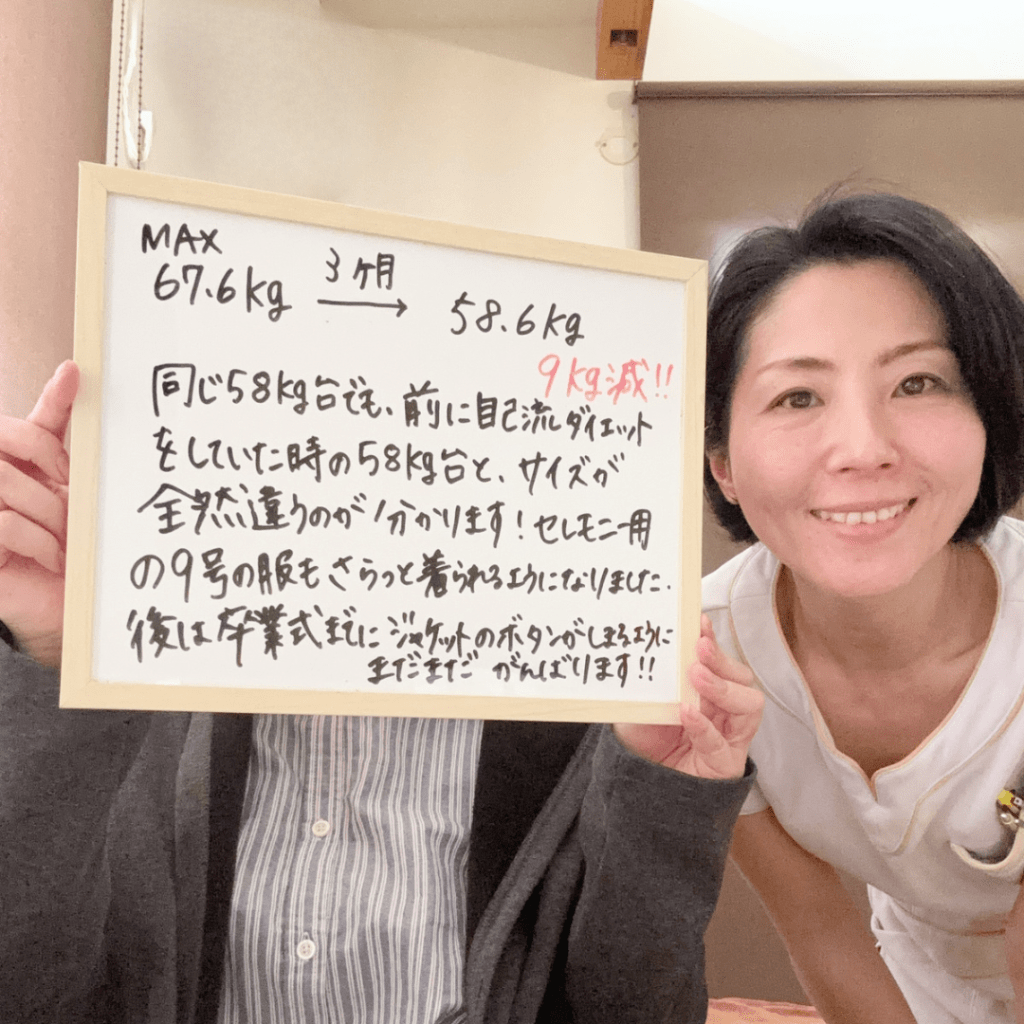 MAX
67.6kg 3ヶ月 → 58.6kg
9kg減!!
同じ58kg台でも、前に自己流ダイエット
をしていた時の58kg台と、サイズが
全然違うのが分かります!セレモニー用
の9号の服もさらっと着られるようになりました.
後は卒業式までにジャケットのボタンがしまるように
まだまだ がんばります!!